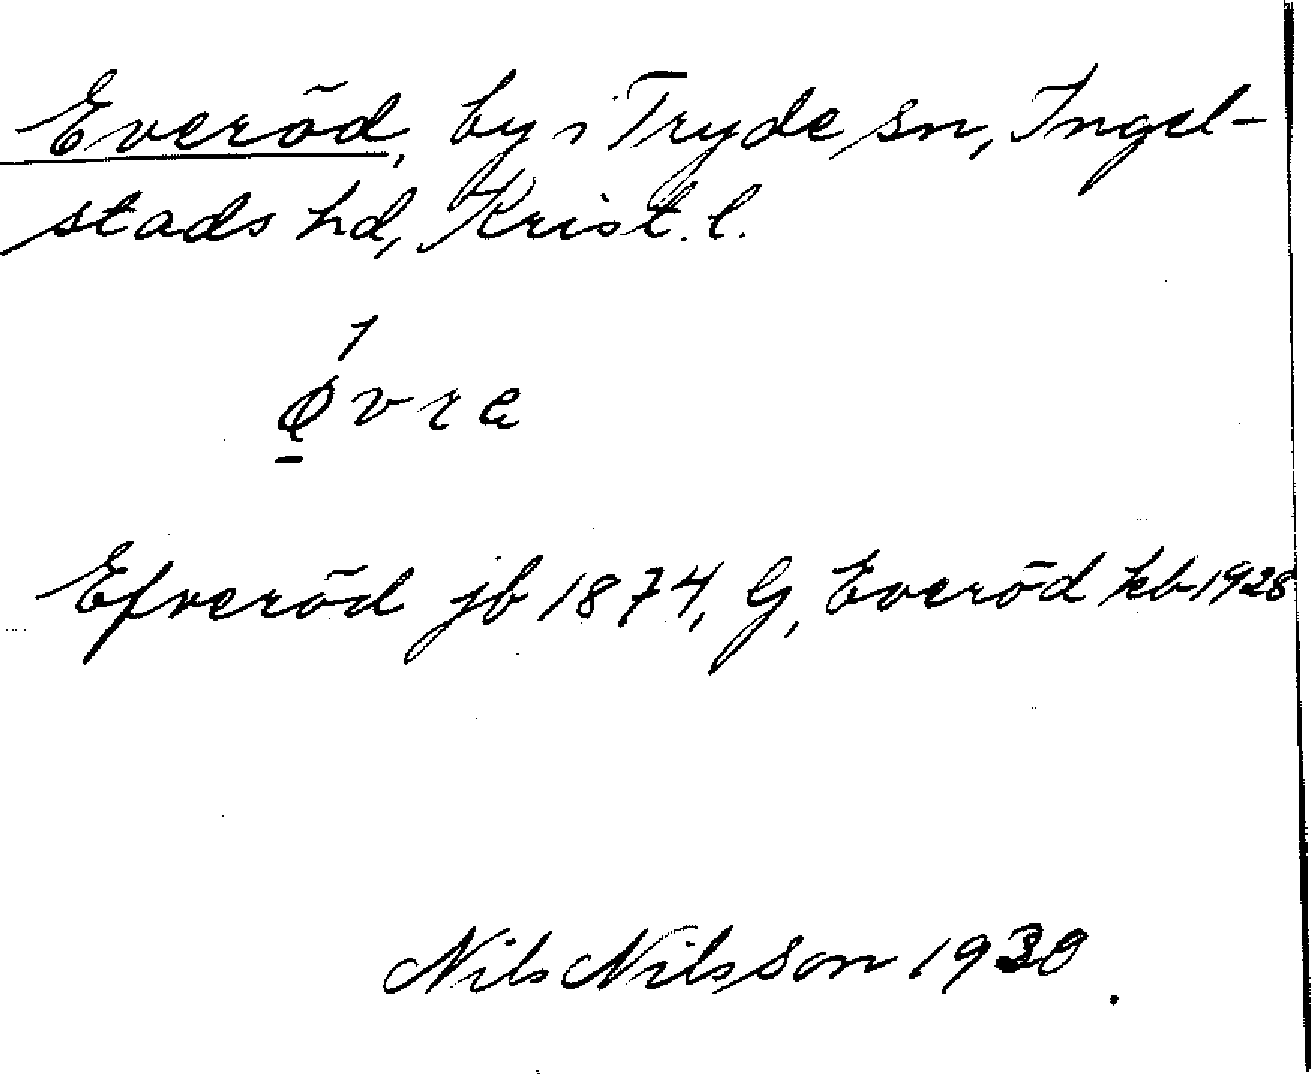 Everöd, by i Tryde sn, Ingel-
stads hd, Krist. l.
Efveröd jb 1874, G, Everöd kb 1928
Nils Nilsson 1930.